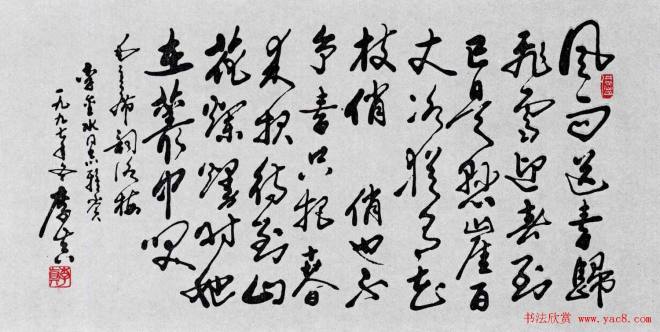 風雨送春歸
飛雪迎春到
已是懸崖百
丈冰猶有花
枝俏 俏也不
争春只把春
来报待到山
花爛漫时她
在叢中笑
毛主席詞咏梅
李金水同志雅赏
一九九七年
书法欣赏
http://www.yac8.com